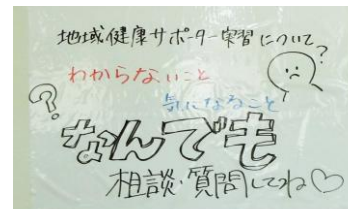 地域健康サポーター実習について
?
わからないこと
気になること
?
なんでも
相談・質問してね♡